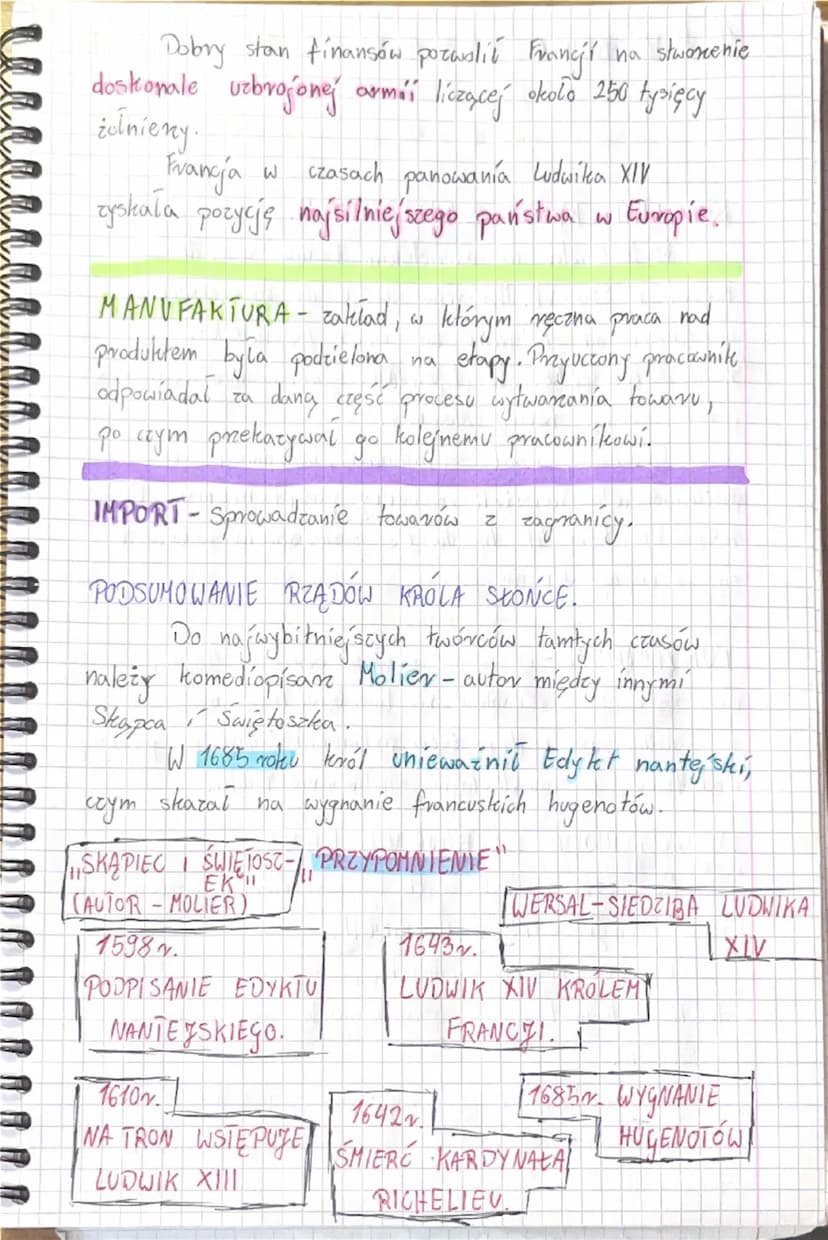 Dobry stan finansów pozwolił Francji na stworzenie
doskonale uzbrojonej armii liczącej około 250 tysięcy
żołnierzy.
Francja w czasach panowania Ludwika XIV
zyskała pozycję najsilniejszego państwa w Europie.
MANUFAKTURA - zakład, w którym ręczna praca nad
produktem była podzielona na etapy. Przyuczony pracownik
odpowiadał za daną część procesu wytwarzania towaru,
po czym przekazywał go kolejnemu pracownikowi.
IMPORT - Sprowadzanie towarów z zagranicy.
PODSUMOWANIE RZĄDÓW KRÓLA SŁOŃCE.
Do najwybitniejszych twórców tamtych czasów
należy komediopisarz Molier - autor między innymi
Skąpca i Świętoszka.
W 1685 roku król unieważnił Edykt nantejski,
czym skazał na wygnanie francuskich hugenotów.
„SKĄPIEC I ŚWIĘTOSZ-
EK"
(AUTOR - MOLIER)
„PRZYPOMNIENIE"
WERSAL-SIEDZIBA LUDWIKA
XIV
1598r.
PODPISANIE EDYKTU
NANTEJSKIEGO.
1643r.
LUDWIK XIV KRÓLEM
FRANCJI.
1610r.
NA TRON WSTĘPUJE
LUDWIK XIII
1642r.
ŚMIERĆ KARDYNAŁA
RICHELIEU.
1685r. WYGNANIE
HUGENOTÓW